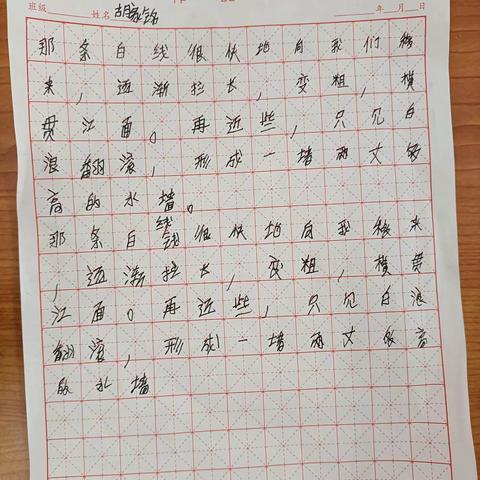 班级 姓名 胡家铭 年 月 日
那条白线很快地向我们移
来，逐渐拉长，变粗，横
贯江面。再近些，只见白
浪翻滚，形成一墙两丈多
高的水墙。
那条白线很快地向我移来
，逐渐拉长，变粗，横贯
江面。再近些，只见白浪
翻滚，形成一墙两丈多高
的水墙